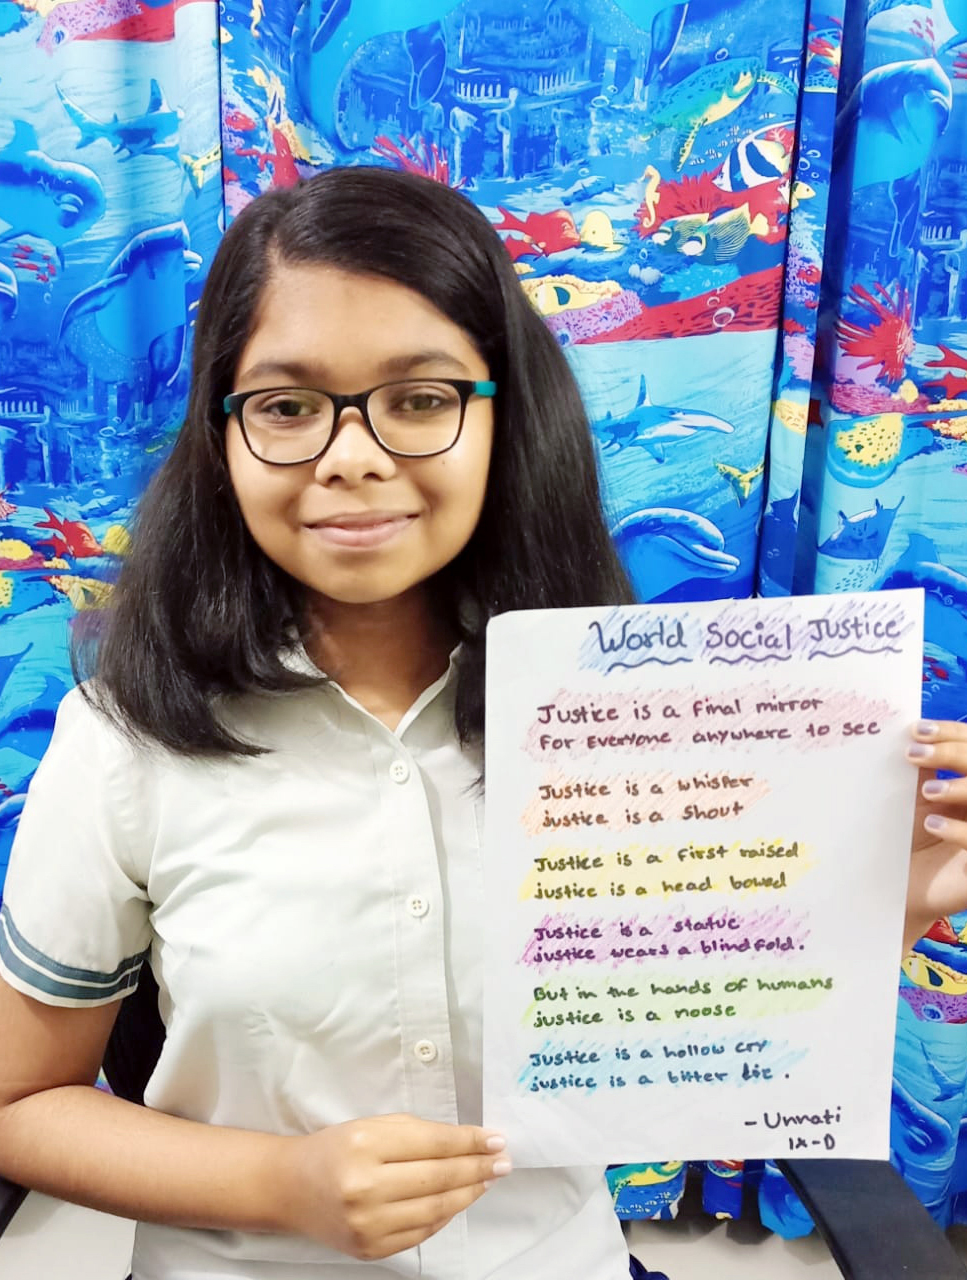 World Social Justice
Justice is a final mirror
For Everyone anywhere to see
Justice is a whisper
justice is a shout
Justice is a first raised
justice is a head bowed
Justice is a statue
justice wears a blindfold.
But in the hands of humans
justice is a noose
Justice is a hollow cry
justice is a bitter lie.
- Unnati
IX-D